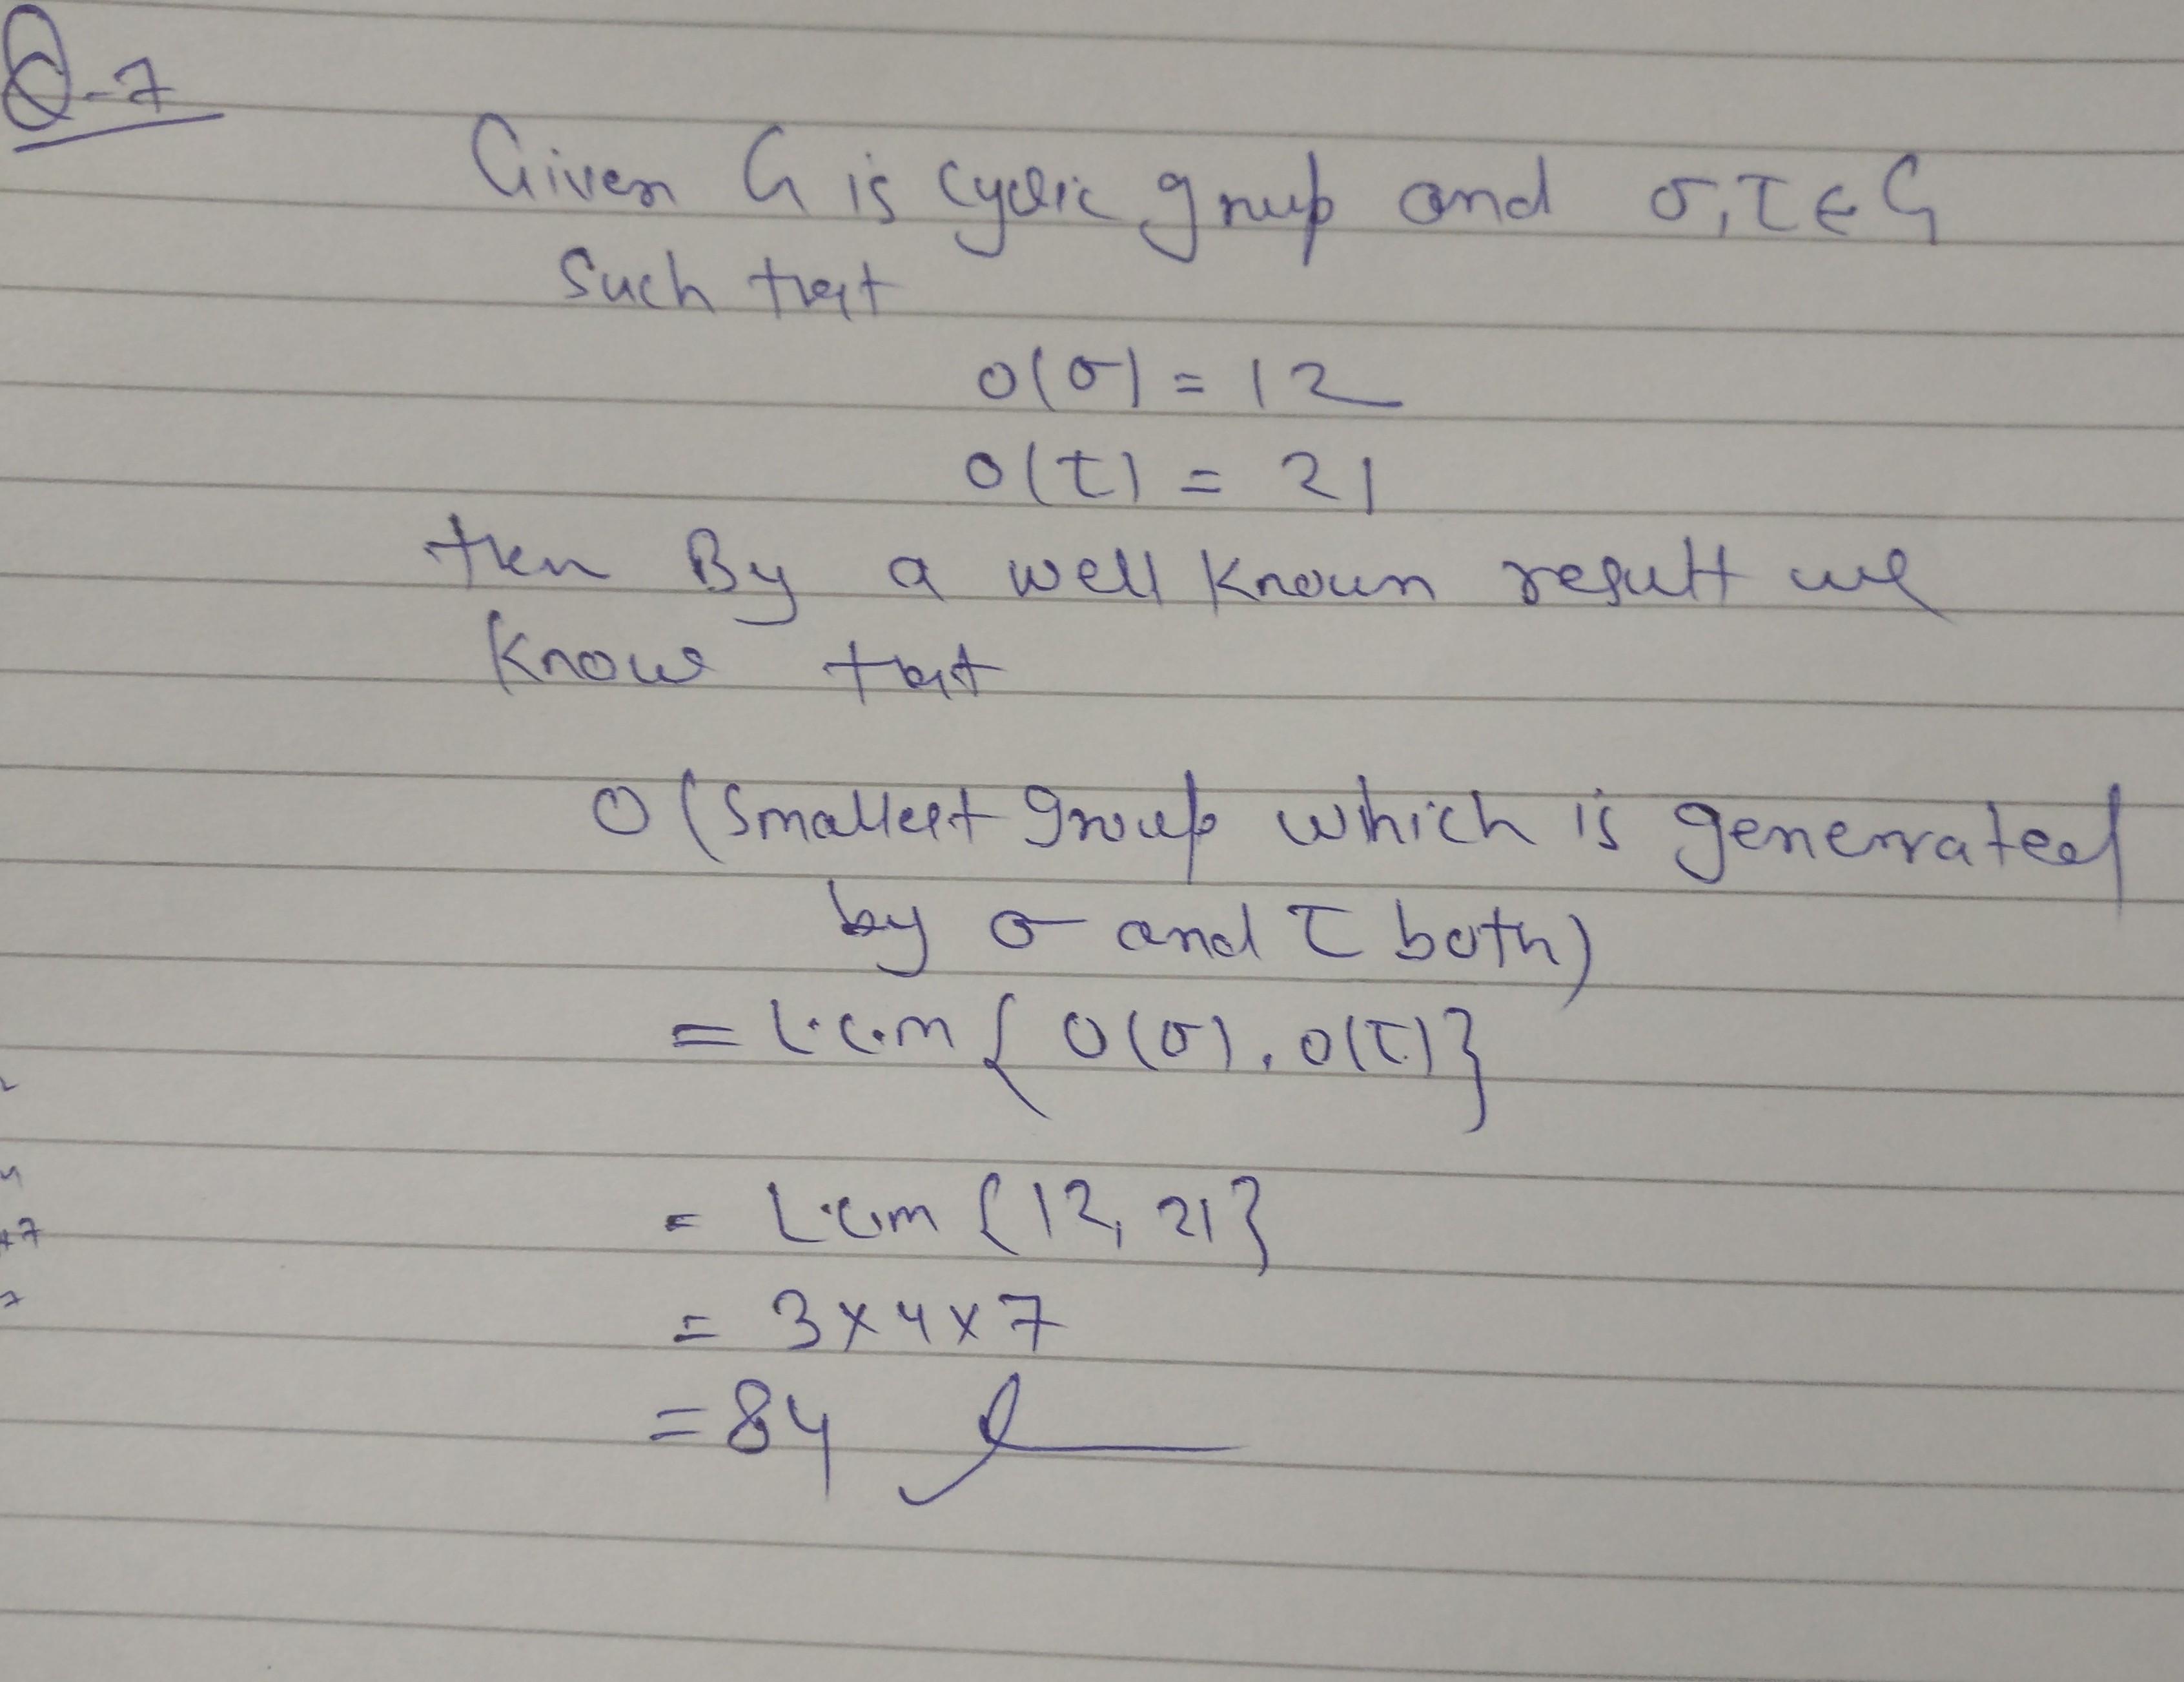 Q-7
Given G is cyclic group and σ, τ ∈ G
such that
o(σ) = 12
o(τ) = 21
then By a well known result we
know that
O (smallest group which is generrated
by σ and τ both)
= L.C.m { O(σ), o(τ)}
= L.C.m {12, 21}
= 3×4×7
= 84